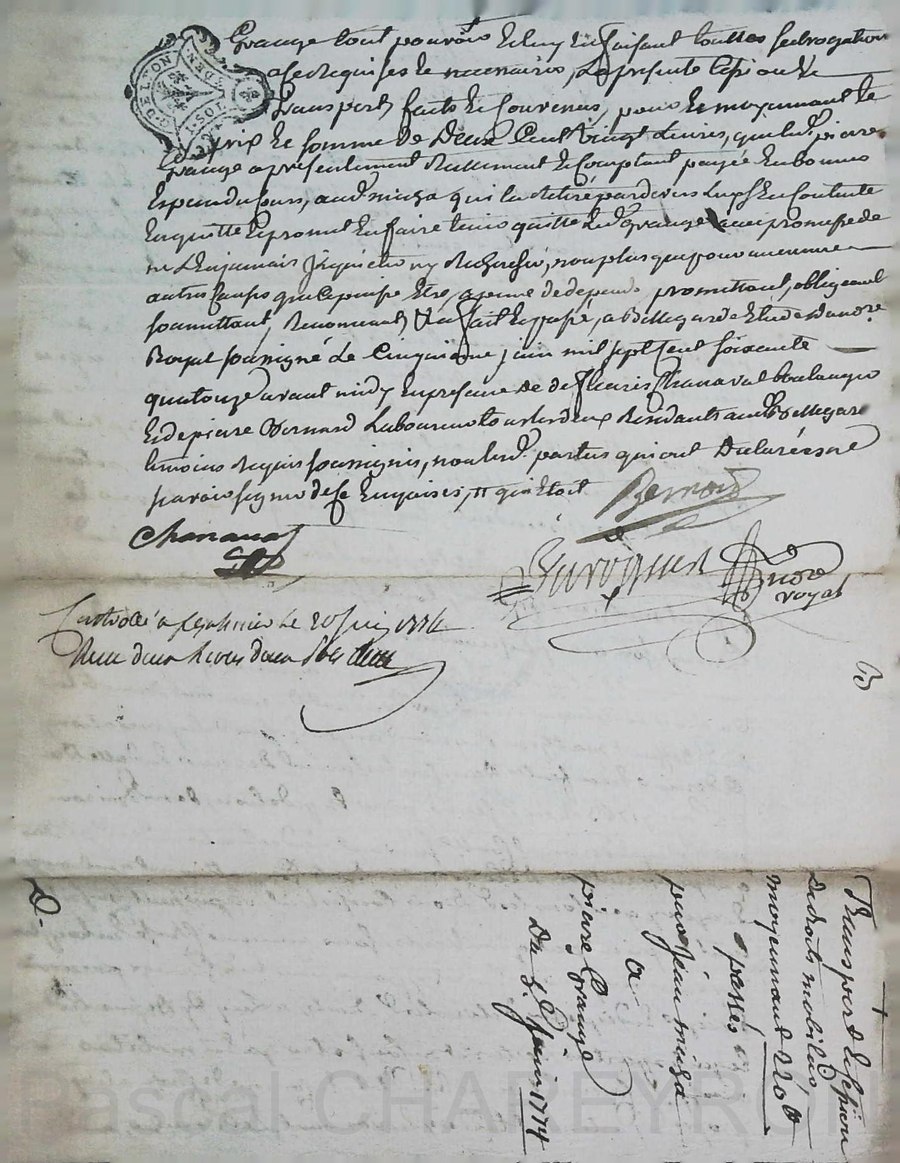 G. DE LYON
1. SOL
DEN.
Grange tout pouvoir Et luy En faisant touttes subrogations
a ce Requises Et necessaires, La presente Cession Et
transport faits Et Convenus, pour Et moyennant Le
prix Et somme de Deux Cent Vingt Livres, que led. pierre
Grange a presentement Reellement Et Comptant payée En bonnes
Especes du Cours, aud. miuza qui la Retiré par devers Luy Et En Contente
En quitte Et promet En faire tenir quitte led. Grange avec promesse de
ne L'En jamais Inquieter ny Rechercher, non plus que pour aucunnes
autres Causes que Ce puisse Etre, a peine de depends promettant, obligeant
soumettant, Renonceant &a fait Et passé, a Bellegarde Etude du no.re
Royal soussigné Le Cinquieme juin mil sept Cent soixante
quatorze avant midy En presence de s.r fleuris Chanavat boulanger
Et de pierre Bernard Laboureur tous les deux Residants aud. Bellegarde
temoins Requis soussignés, non les d. parties qui ont Declaré ne
savoir signer de Ce Enquises, et qui Etoit
Bernard
Chanavat
Duroquet
no.re
royal
Controlé a le 20 Juin 1774
Reçu deux livres deux sols
B
D.
Transport de Cession
de droits mobiliés,
moyennant 220 tt
passés
par Jean miuza
a
pierre Grange
Du 5.e Juin 1774
Pascal CHAREYRON